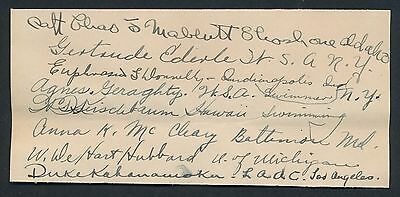 Capt Chas S Mabbutt Shoshone Idaho
Gertrude Ederle W. S. A N. Y.
Euphrasia Donnelly - Indianapolis Ind
Agnes Geraghty. W.S.A Swimmer N.Y.
Kirschbaum Hawaii Swimming
Anna K. Mc Chay Baltimore Md.
W. De Hart Hubbard U. of Michigan
Duke Kahanamoku - L.A.A.C. Los Angeles.